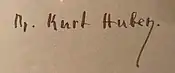 Dr. Kurt Huber.